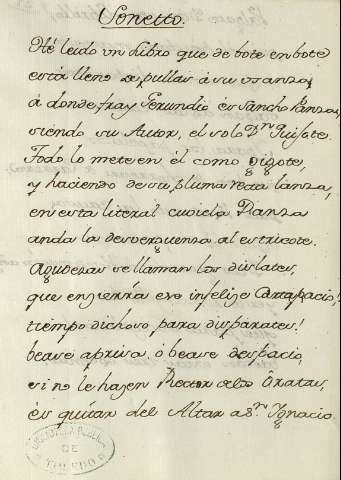 Sonetto.
Hé leido un Libro que de bote en bote
está lleno de pullas á su usanza,
á donde fray Gerundio és Sancho Panza,
siendo su Autor, el solo Dn. Quijote.
Todo lo mete en él como Gigote,
y haciendo de su pluma Lanza,
en esta literal Danza
anda la desverguenza al estricote.
Agudezas se llaman los dislates,
que enzierra ese infelize Cartapacio!
tiempo dichoso para disparates!
beave aprisa, ó beave despacio,
si no le hazen Rector Orates,
és quitar del Altar a Sn. Ygnacio.
BIBLIOTECA PUBLICA
DE
TOLEDO